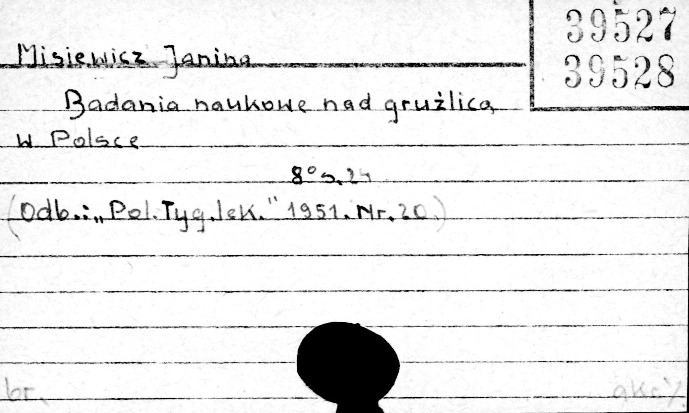 39527
39528
Misiewicz Janina
Badania naukowe nad gruźlicą
w Polsce
8° s. 24
(Odb.: „Pol. Tyg. lek." 1951. Nr. 20.)
br.